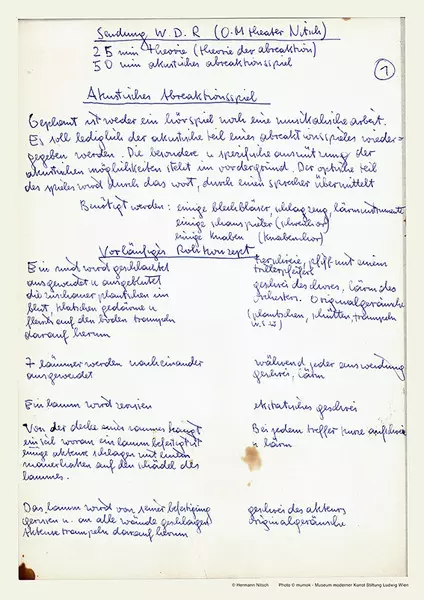 Sendung W.D.R (O.M theater Nitsch)
25 min theorie (theorie der abreaktion)
50 min akustisches abreaktionsspiel
1
Akustisches Abreaktionsspiel
Geplant ist weder ein hörspiel noch eine musikalische arbeit.
Es soll lediglich der akustische teil eines abreaktionsspieles wieder-
gegeben werden. Die besondere u spezifische ausnützung der
akustischen möglichkeiten steht im vordergrund. Der optische teil
des spieles wird durch das wort, durch einen sprecher übermittelt
Benötigt werden: einige blechbläser, schlagzeug, lärminstrumente
einige schauspieler (schreichor)
einige knaben (knabenchor)
Vorläufiges Rohkonzept
Ein rind wird geschlachtet
ausgeweidet u ausgeblutet
die zuschauer plantschen im
blut, klatschen gedärme u
fleisch auf den boden trampeln
darauf herum
pfiff mit einem
trillerpfeiferl
geschrei des chores, lärm des
orchesters. Originalgeräusche
(plantschen, schütten, trampeln
u.s.w)
7 lämmer werden nacheinander
ausgeweidet
während jeder ausweidung
geschrei, lärm
Ein lamm wird zerrissen
ekstatisches geschrei
Von der decke eines raumes hängt
ein seil woran ein lamm befestigt ist
einige akteure schlagen mit einem
mauerhaken auf den schädel des
lammes.
Bei jedem treffer kurze aufschreie
u lärm
Das lamm wird von seiner befestigung
gerissen u. an alle wände geschlagen
Akteure trampeln darauf herum
geschrei des akteurs
originalgeräusche
© Hermann Nitsch Photo © mumok - Museum moderner Kunst Stiftung Ludwig Wien